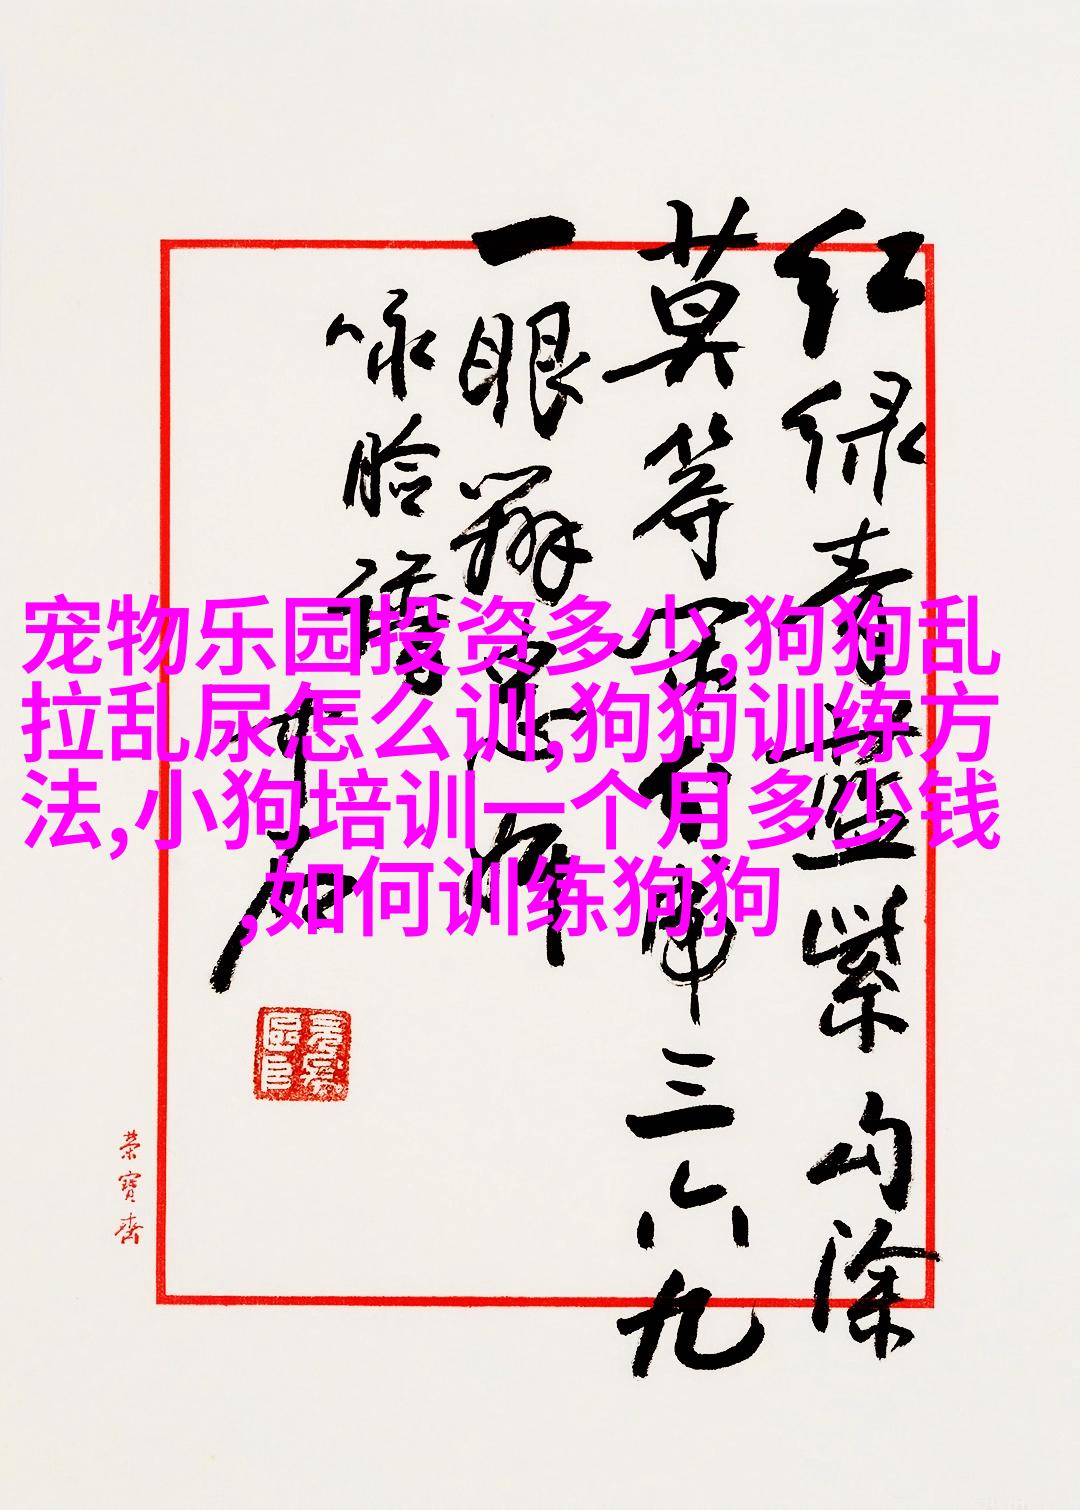 宠物乐园投资多少,狗狗乱
拉乱尿怎么训,狗狗训练方
法,小狗培训一个月多少钱
,如何训练狗狗
红绿青蓝紫勾除
莫等闲白郎三六九
一眼辨忠奸
咏脸谱
荣寶齋